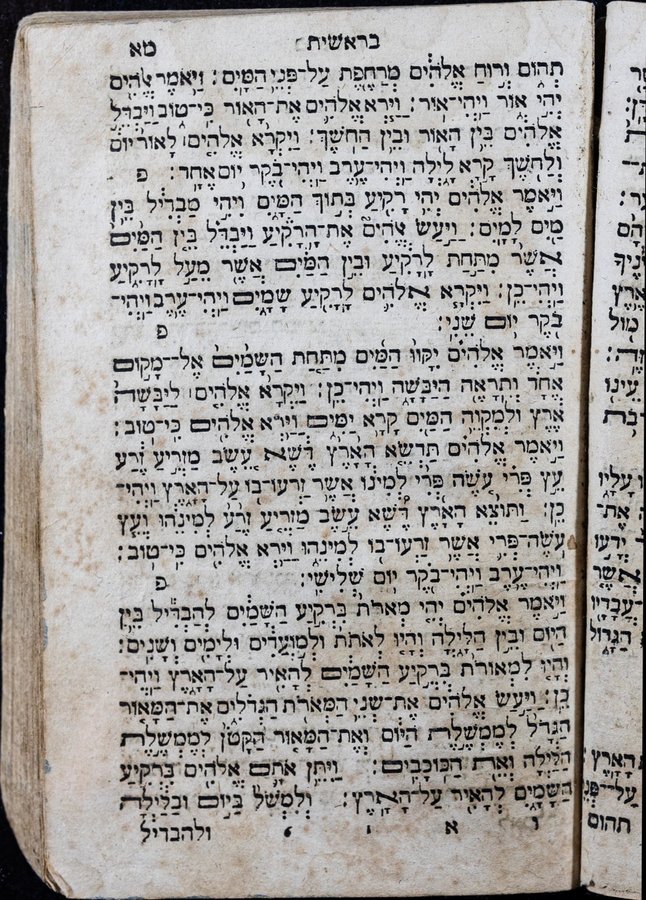 בראשית מא
תְהוֹם וְרוּחַ אֱלֹהִים מְרַחֶפֶת עַל־פְּנֵי הַמָּיִם׃ וַיֹּאמֶר אֱלֹהִים
יְהִי אוֹר וַיְהִי־אוֹר׃ וַיַּרְא אֱלֹהִים אֶת־הָאוֹר כִּי־טוֹב וַיַּבְדֵּל
אֱלֹהִים בֵּין הָאוֹר וּבֵין הַחֹשֶׁךְ׃ וַיִּקְרָא אֱלֹהִים׀ לָאוֹר יוֹם
וְלַחֹשֶׁךְ קָרָא לָיְלָה וַיְהִי־עֶרֶב וַיְהִי־בֹקֶר יוֹם אֶחָד׃ פ
וַיֹּאמֶר אֱלֹהִים יְהִי רָקִיעַ בְּתוֹךְ הַמָּיִם וִיהִי מַבְדִּיל בֵּין
מַיִם לָמָיִם׃ וַיַּעַשׂ אֱלֹהִים אֶת־הָרָקִיעַ וַיַּבְדֵּל בֵּין הַמַּיִם
אֲשֶׁר מִתַּחַת לָרָקִיעַ וּבֵין הַמַּיִם אֲשֶׁר מֵעַל לָרָקִיעַ
וַיְהִי־כֵן׃ וַיִּקְרָא אֱלֹהִים לָרָקִיעַ שָׁמָיִם וַיְהִי־עֶרֶב וַיְהִי־
בֹקֶר יוֹם שֵׁנִי׃ פ
וַיֹּאמֶר אֱלֹהִים יִקָּווּ הַמַּיִם מִתַּחַת הַשָּׁמַיִם אֶל־מָקוֹם
אֶחָד וְתֵרָאֶה הַיַּבָּשָׁה וַיְהִי־כֵן׃ וַיִּקְרָא אֱלֹהִים׀ לַיַּבָּשָׁה
אֶרֶץ וּלְמִקְוֵה הַמַּיִם קָרָא יַמִּים וַיַּרְא אֱלֹהִים כִּי־טוֹב׃
וַיֹּאמֶר אֱלֹהִים תַּדְשֵׁא הָאָרֶץ דֶּשֶׁא עֵשֶׂב מַזְרִיעַ זֶרַע
עֵץ פְּרִי עֹשֶׂה פְּרִי לְמִינוֹ אֲשֶׁר זַרְעוֹ־בוֹ עַל־הָאָרֶץ וַיְהִי־
כֵן׃ וַתּוֹצֵא הָאָרֶץ דֶּשֶׁא עֵשֶׂב מַזְרִיעַ זֶרַע לְמִינֵהוּ וְעֵץ
עֹשֶׂה־פְּרִי אֲשֶׁר זַרְעוֹ־בוֹ לְמִינֵהוּ וַיַּרְא אֱלֹהִים כִּי־טוֹב׃
וַיְהִי־עֶרֶב וַיְהִי־בֹקֶר יוֹם שְׁלִישִׁי׃ פ
וַיֹּאמֶר אֱלֹהִים יְהִי מְאֹרֹת בִּרְקִיעַ הַשָּׁמַיִם לְהַבְדִּיל בֵּין
הַיּוֹם וּבֵין הַלָּיְלָה וְהָיוּ לְאֹתֹת וּלְמוֹעֲדִים וּלְיָמִים וְשָׁנִים׃
וְהָיוּ לִמְאוֹרֹת בִּרְקִיעַ הַשָּׁמַיִם לְהָאִיר עַל־הָאָרֶץ וַיְהִי־
כֵן׃ וַיַּעַשׂ אֱלֹהִים אֶת־שְׁנֵי הַמְּאֹרֹת הַגְּדֹלִים אֶת־הַמָּאוֹר
הַגָּדֹל לְמֶמְשֶׁלֶת הַיּוֹם וְאֶת־הַמָּאוֹר הַקָּטֹן לְמֶמְשֶׁלֶת
הַלַּיְלָה וְאֵת הַכּוֹכָבִים׃ וַיִּתֵּן אֹתָם אֱלֹהִים בִּרְקִיעַ
הַשָּׁמָיִם לְהָאִיר עַל־הָאָרֶץ׃ וְלִמְשֹׁל בַּיּוֹם וּבַלַּיְלָה
ו א י י ולהבדיל